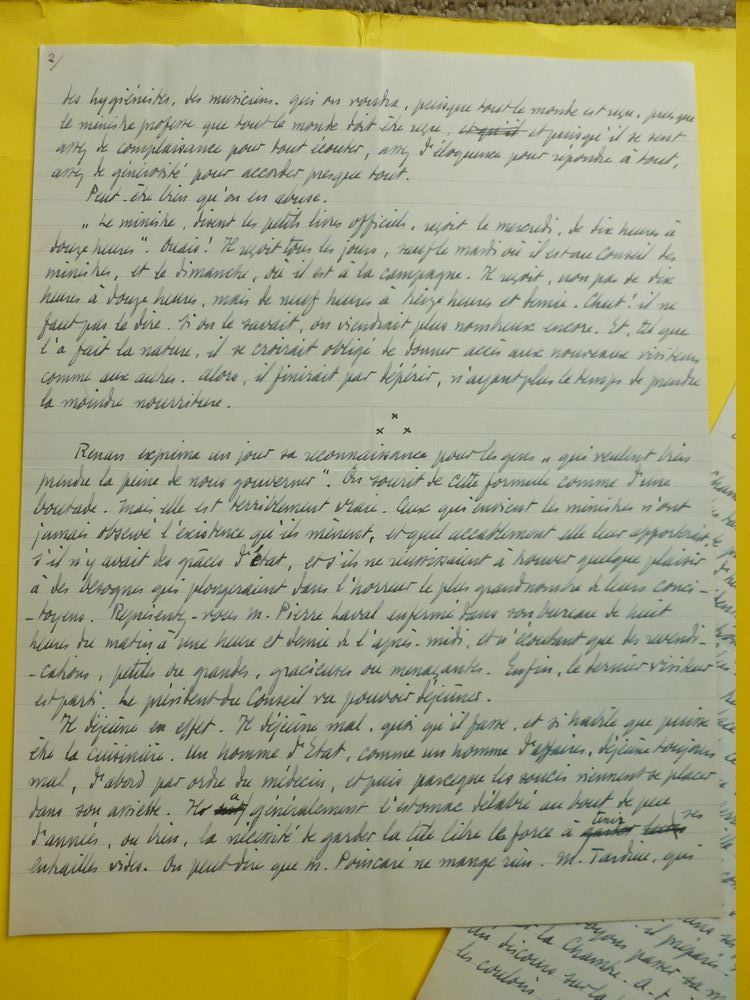 2/
des hygiénistes, des musiciens, qui on voudra, puisque tout le monde est reçu, puisque
le ministre professe que tout le monde doit être reçu, et qu'il et puisqu'il se sent
assez de complaisance pour tout écouter, assez d'éloquence pour répondre à tout,
assez de générosité pour accorder presque tout.
Peut-être bien qu'on en abuse.
„ Le ministre, disent les petits livres officiels, reçoit le mercredi, de dix heures à
douze heures". Ouais! Il reçoit tous les jours, sauf le mardi où il est au Conseil des
ministres, et le dimanche, où il est à la campagne. Il reçoit, non pas de dix
heures à douze heures, mais de neuf heures à treize heures et demie. Chut! il ne
faut pas le dire. Si on le savait, on viendrait plus nombreux encore. Et, tel que
l'a fait la nature, il se croirait obligé de donner accès aux nouveaux visiteurs
comme aux autres. Alors, il finirait par dépérir, n'ayant plus le temps de prendre
la moindre nourriture.
x
x x
Renan exprima un jour sa reconnaissance pour les gens „ qui veulent bien
prendre la peine de nous gouverner". On sourit de cette formule comme d'une
boutade. Mais elle est terriblement vraie. Ceux qui envient les ministres n'ont
jamais observé l'existence qu'ils mènent, et quel accablement elle leur apporterait,
s'il n'y avait des grâces d'État, et s'ils ne réussissaient à trouver quelque plaisir
à des besognes qui plongeraient dans l'horreur le plus grand nombre de leurs conci-
-toyens. Représentez-vous M. Pierre Laval enfermé dans son bureau de huit
heures du matin à une heure et demie de l'après-midi, et n'écoutant que des revendi-
-cations, petites ou grandes, gracieuses ou menaçantes. Enfin, le dernier visiteur
est parti. Le président du Conseil va pouvoir déjeuner.
Il déjeune en effet. Il déjeune mal, quoi qu'il fasse, et si habile que puisse
être la cuisinière. Un homme d'Etat, comme un homme d'affaires, déjeune toujours
mal, d'abord par ordre du médecin, et puis parceque les soucis viennent se placer
dans son assiette. Il a généralement l'estomac délabré au bout de peu
d'années, ou bien, la nécessité de garder la tête libre le force à tenir ses
entrailles vides. On peut dire que M. Poincaré ne mange rien. M. Tardieu, qui
il préparé
passer sa
un discours sur la
la Chambre. A-t
les couloirs